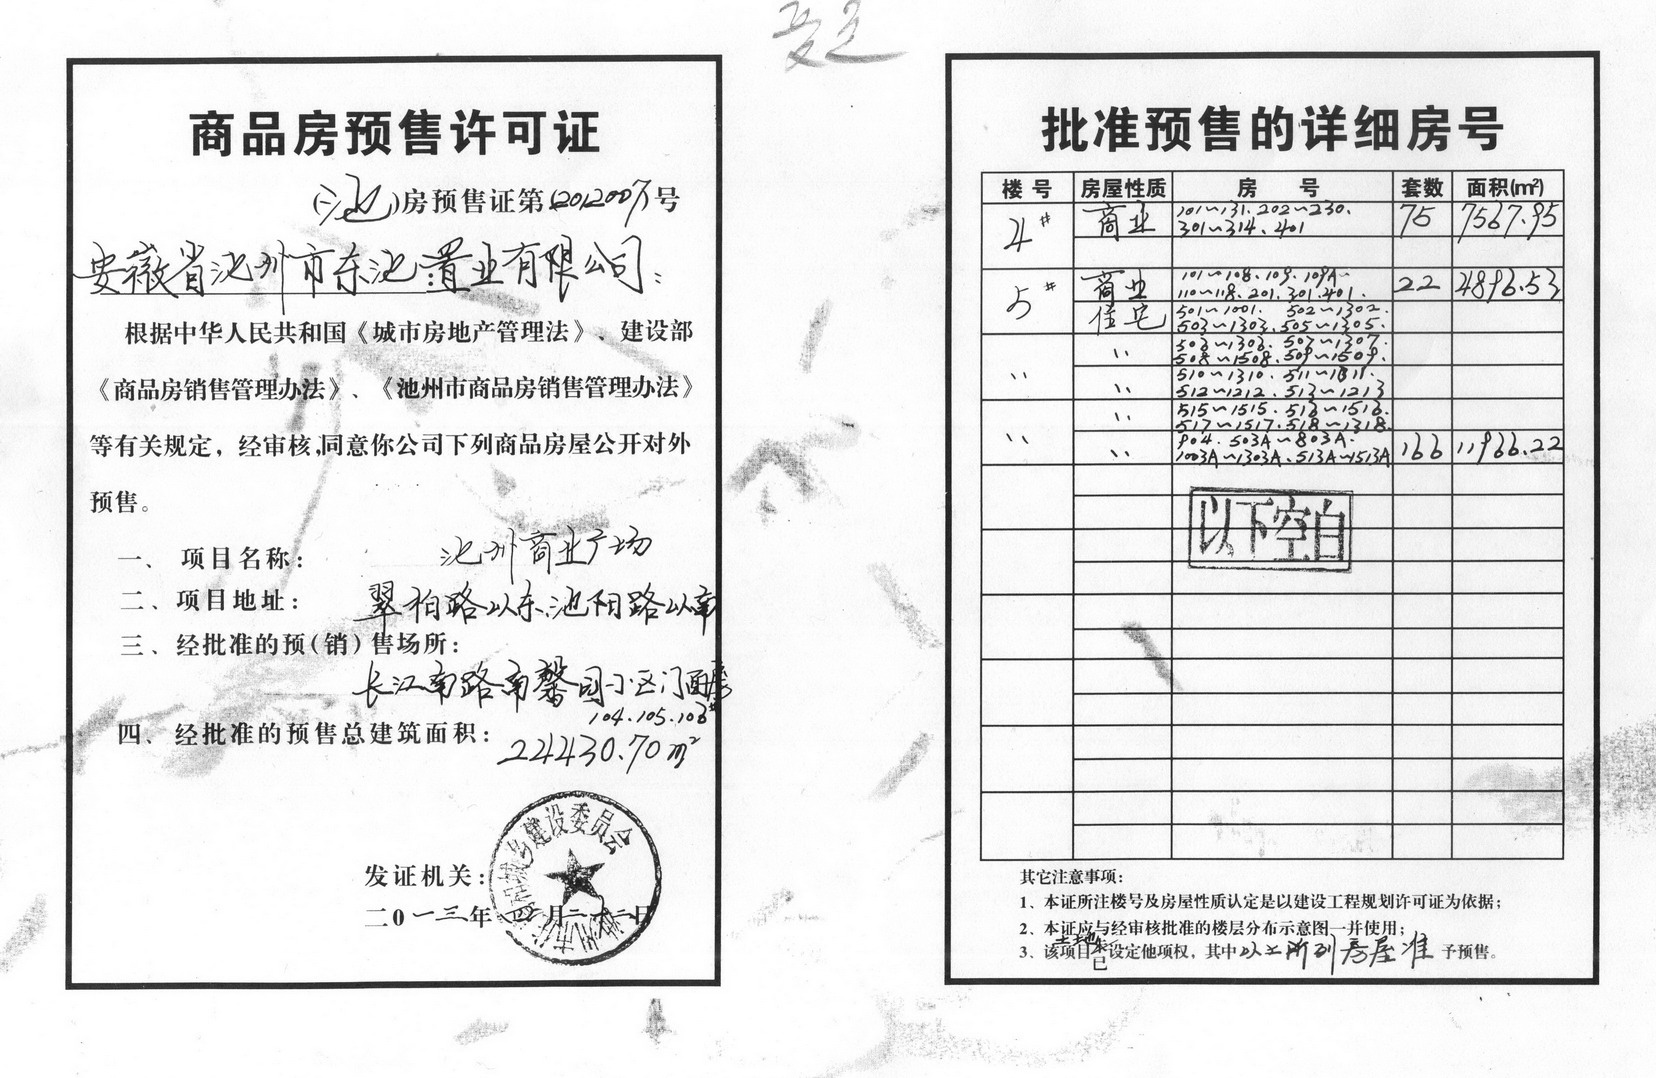 商品房预售许可证
(池)房预售证第(2012007)号
安徽省池州市东池置业有限公司:
根据中华人民共和国《城市房地产管理法》、建设部
《商品房销售管理办法》、《池州市商品房销售管理办法》
等有关规定，经审核,同意你公司下列商品房屋公开对外
预售。
一、项目名称: 池州商业广场
二、项目地址: 翠柏路以东池阳路以南
三、经批准的预(销)售场所:
长江南路南馨园小区门面房
104.105.106#
四、经批准的预售总建筑面积: 22430.70m²
发证机关:
池州市住房和城乡建设委员会
二0一三年 二月二十二日
批准预售的详细房号
楼号 房屋性质 房号 套数 面积(m²)
4# 商业 101~131.202~230. 75 7567.95
301~314.401
5# 商业 101~108.109.109A~ 22 4896.53
110~118.201.301.401.
住宅 501~1001. 502~1302.
503~1303.505~1305.
〃 506~1306. 507~1307.
508~1508.509~1509.
〃 〃 510~1310. 511~1311.
512~1212. 513~1213
〃 515~1515. 516~1516.
517~1517.518~1318.
〃 〃 904. 503A~803A. 166 11966.22
1003A~1303A.513A~1513A
以下空白
其它注意事项:
1、本证所注楼号及房屋性质认定是以建设工程规划许可证为依据;
2、本证应与经审核批准的楼层分布示意图一并使用;
3、该项目土地未已设定他项权，其中以上所列房屋准予预售。